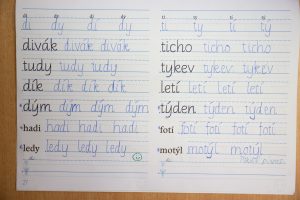 di dy dí dý
di dy dí dy
divák divák divák
tudy tudy tudy
dík dík dík dík
dým dým dým dým
hadi hadi hadi hadi
ledy ledy ledy ledy
ti ty tí tý
ti ty tí tý
ticho ticho ticho
tykev tykev tykev
letí letí letí letí
týden týden týden
fotí fotí fotí fotí
motýl motýl motýl